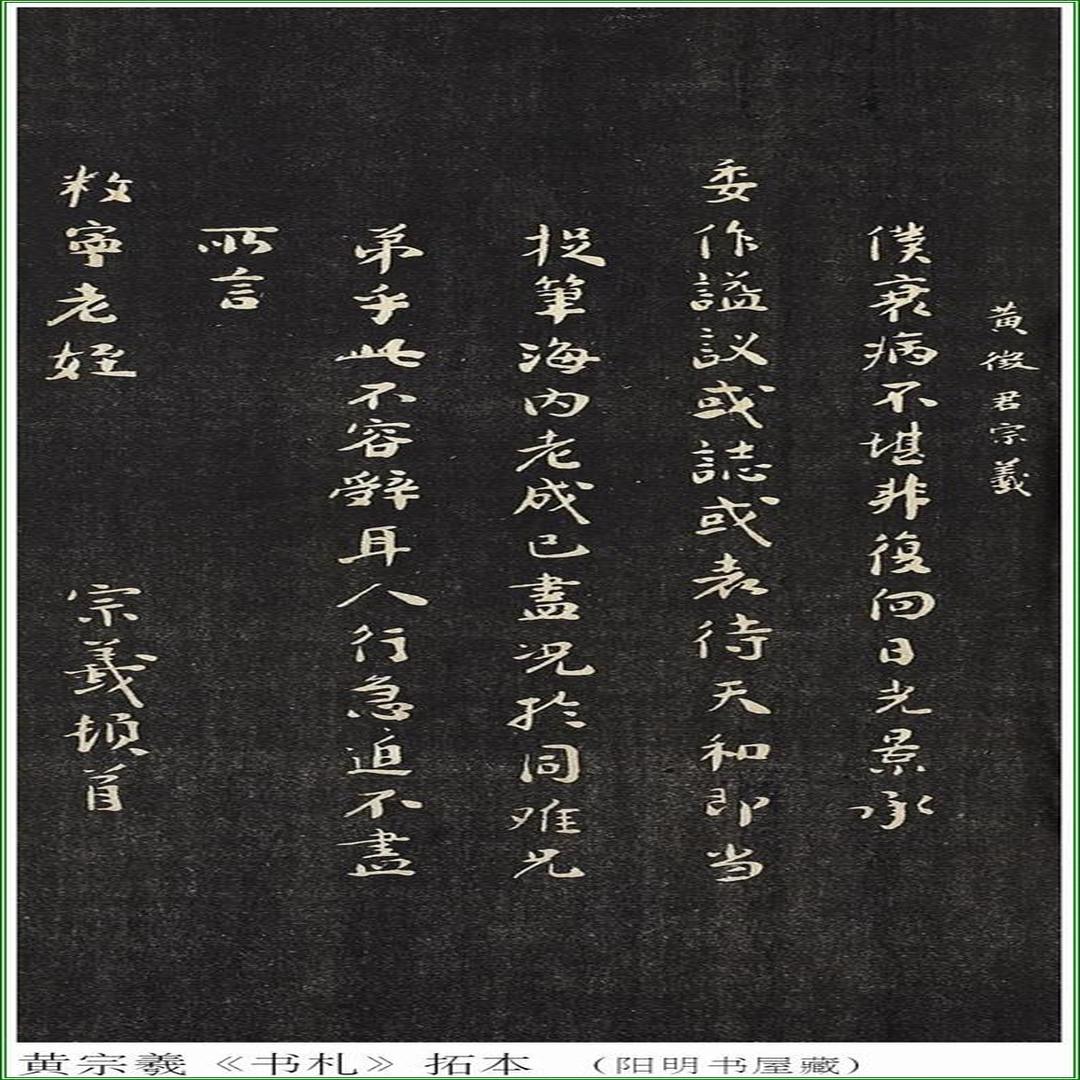 黄徵君宗羲
僕衰病不堪非復向日光景承
委作謚議或誌或表待天和即当
捉筆海内老成已盡況於同难兄
弟乎此不容辤耳人行急迫不盡
所言
敉寧老姪 宗羲頓首
黄宗羲《书札》拓本 （阳明书屋藏）